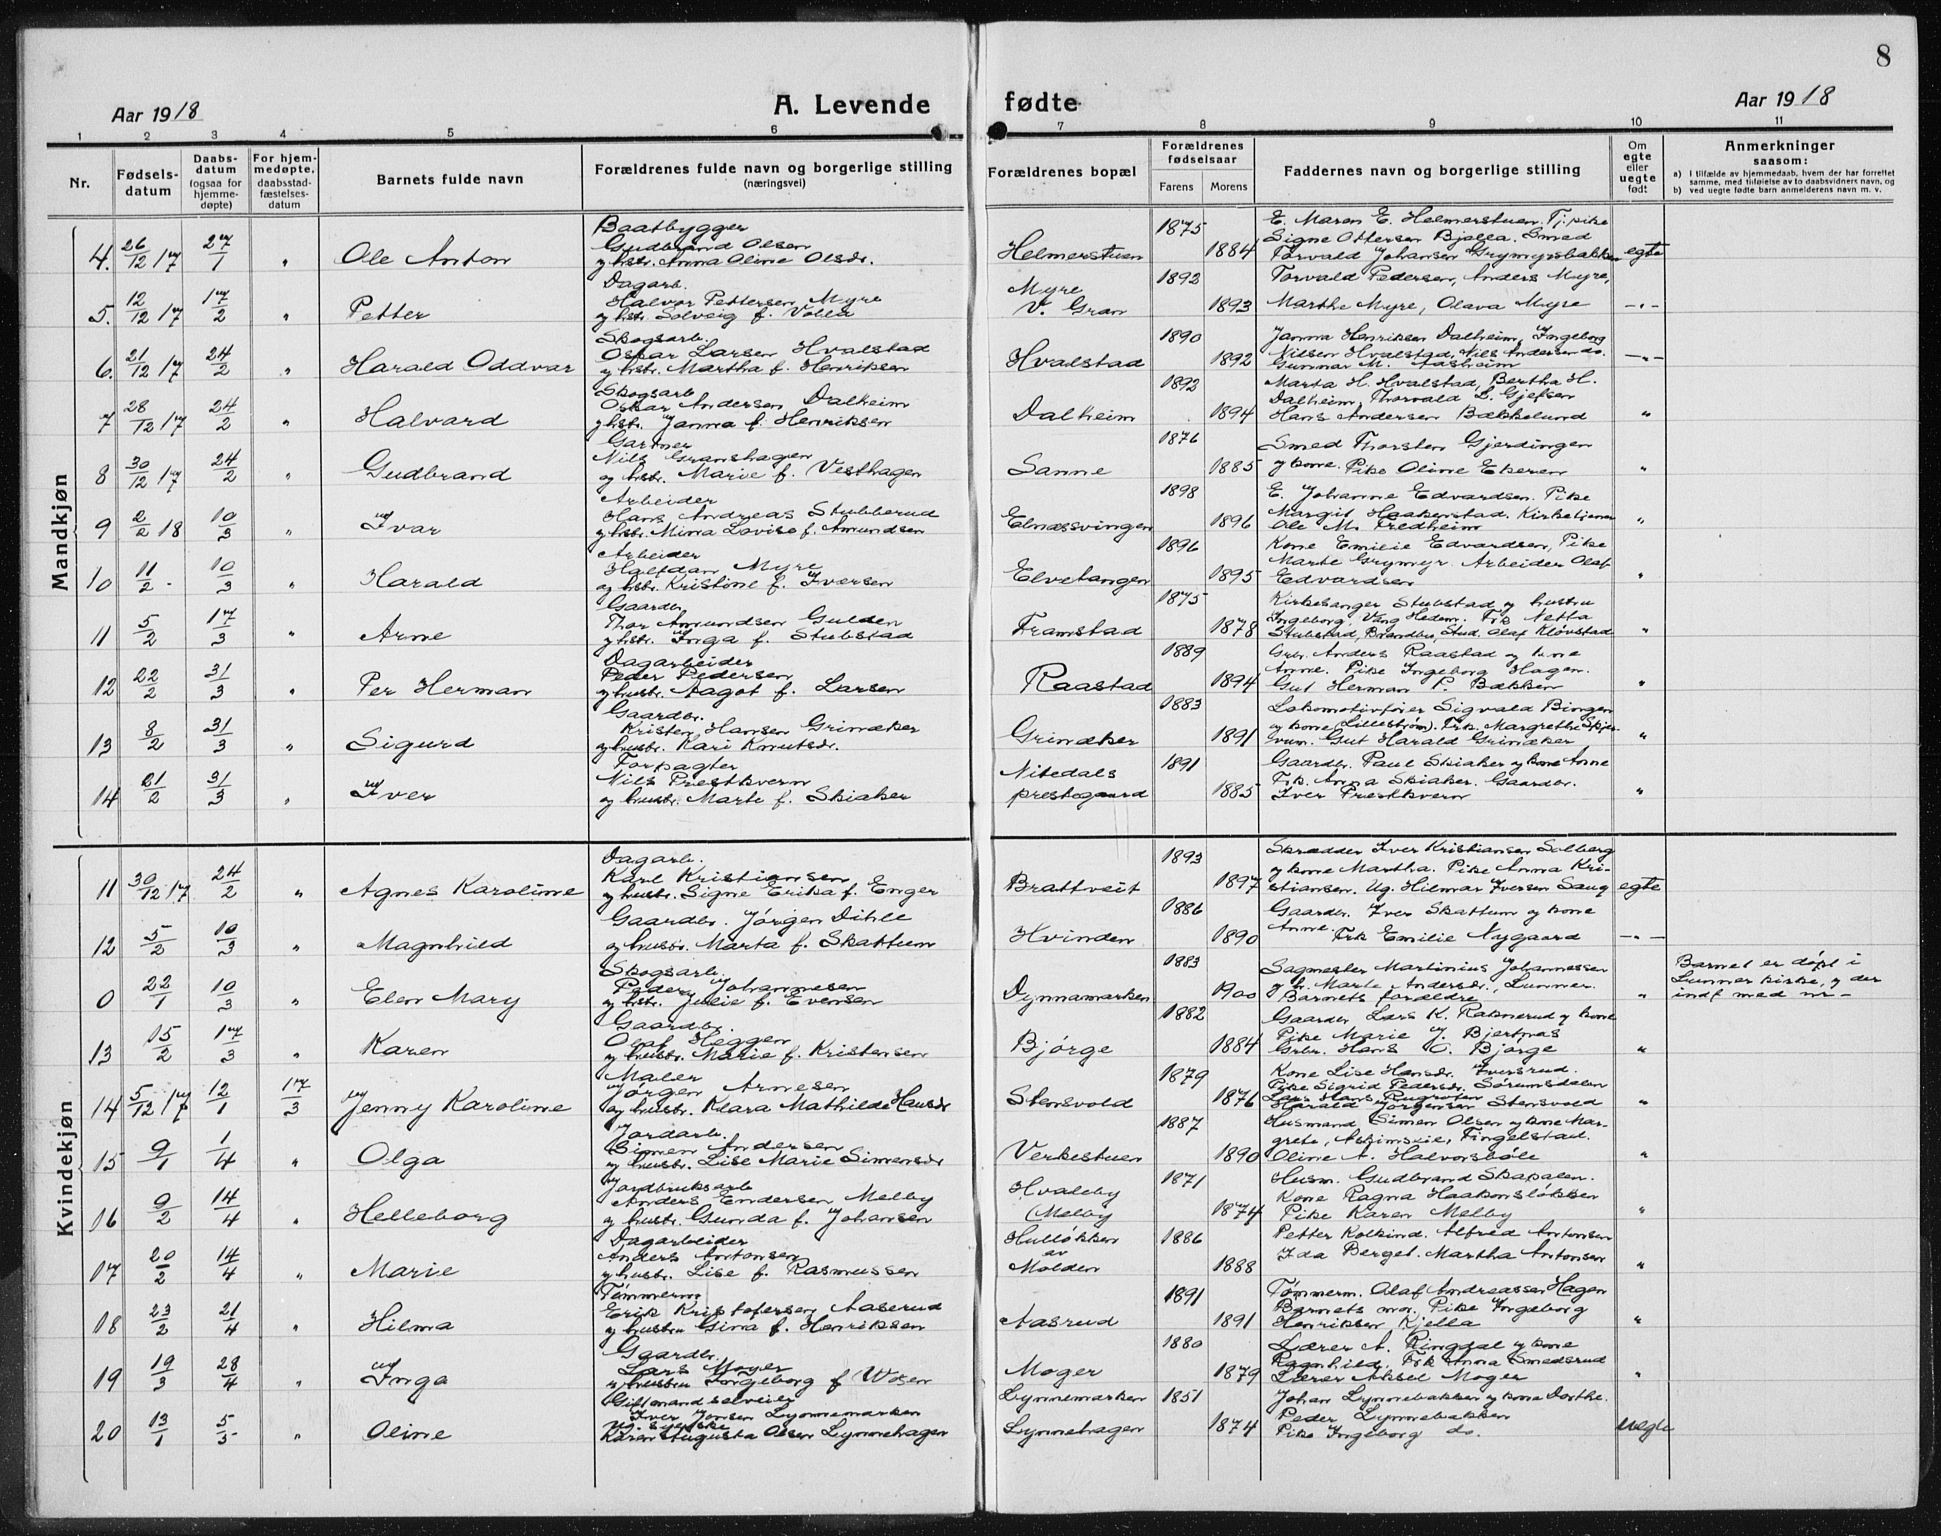 8
Aar 1918
A. Levende fødte
Aar 1918
1 2 3 4 5 6 7 8 9 10 11
Nr.
Fødsels-
datum
Daabs-
datum
(ogsaa for
hjemme-
døpte)
For hjem-
medøpte,
daabsstad-
fæstelses-
datum
Barnets fulde navn
Forældrenes fulde navn og borgerlige stilling
(næringsvei)
Forældrenes bopæl
Forældrenes
fødselsaar
Farens Morens
Faddernes navn og borgerlige stilling
Om
egte
eller
uegte
født
Anmerkninger
saasom:
a) I tilfælde av hjemmedaab, hvem der har forrettet
samme, med tilføielse av to daabsvidners navn, og
b) ved uegte fødte barn anmelderens navn m. v.
Mandkjøn
4. 26/12 17 27/1 " Ole Anton
Baatbygger
Gudbrand Olsen
og hstr. Anna Oline Olsdr.
Helmerstuen 1875 1884
E. Maren E. Helmerstuen. Tj. pike
Signe Ottersen Bjella. Smed
Torvald Johansen Grymyrsbakken
egte
5. 12/12 17 17/2 " Petter
Dagarb.
Halvor Pettersen Myre
og hstr. Solveig f. Volla
Myre
v. Gran 1892 1893
Torvald Pedersen, Anders Myre,
Marthe Myre, Olava Myre
-"-
6. 21/12 17 24/2 " Harald Oddvar
Skogsarb.
Oskar Larsen Hvalstad
og hstr. Martha f. Henriksen
Hvalstad 1890 1892
Janna Henriksen Dalheim, Ingeborg
Nilsen Hvalstad, Nils Andersen do.
Gunnar M. Aasheim
-"-
7 28/12 17 24/2 " Halvard
Skogsarb.
Oskar Andersen Dalheim
og hstr. Janna f. Henriksen
Dalheim 1892 1894
Marta H. Hvalstad, Bertha H.
Dalheim, Thorvald L. Gjefsen
Hans Andersen Bakkelund
"
8 30/12 17 24/2 " Gudbrand
Gartner
Nils Granshagen
og hstr. Marie f. Vesthagen
Sanne 1876 1885
Smed Thorsten Gjerdingen
og kone. Pike Oline Ekeren
"
9 2/2 18 10/3 " Ivar
Arbeider
Hans Andreas Stubberud
og hstr. Mina Lovise f. Amundsen
Elnæssvingen 1898 1896
E. Johanne Edvardsen. Pike
Margit Haakenstad. Kirketjener
Ole M. Fredheim
"
10 11/2 - 10/3 " Harald
Arbeider
Halfdan Myre
og hstr. Kristine f. Iversen
Elvetangen 1896 1895
Kone Emilie Edvardsen, Pike
Marte Grymyr. Arbeider Olaf
Edvardsen
"
11 5/2 17/3 " Arne
Gaardbr.
Thor Amundsen Gulden
og hstr. Inga f. Stubstad
Framstad 1875 1878
Kirkesanger Stubstad og hustru
Ingeborg, Vang Hedem. Frk Netta
Stubstad, Brandbu, Stud. Olaf Kløvstad
"
12 22/2 31/3 " Per Herman
Dagarbeider
Peder Pedersen
og hustr. Aagot f. Larsen
Raastad 1889 1894
Grbr. Anders Raastad og kone
Anne. Pike Ingeborg Hagen.
Gut Herman P. Bækken
"
13 8/2 31/3 " Sigurd
Gaardbr.
Kristen Hansen Grinaker
og hustr. Kari Knutsdr.
Grinaker 1883 1891
Lokomotivfører Sigvald Bingen
og kone Lillestrøm. Frk. Margrethe Skjer-
vum. Gut Harald Grinaker
"
14 21/2 31/3 " Iver
Forpagter
Nils Prestkvern
og hustr. Marte f. Skiaker
Nitedals
prestegaard 1891 1885
Gaardbr. Paul Skiaker og kone Anne
Frk. Anna Skiaker. Gaardbr.
Iver Prestkvern
"
Kvindekjøn
11 30/12 17 24/2 " Agnes Karoline
Dagarb.
Karl Kristiansen
og hustr. Signe Erika f. Enger
Brattveit 1893 1897
Skrædder Iver Kristiansen Solberg
og kone Martha. Pike Anna Kri-
stiansen. Ug. Hilmar Iversen Saug
egte
12 5/2 10/3 " Magnhild
Gaardbr. Jørgen Dihle
og hustr. Marta f. Skattum
Hvinden 1886 1890
Gaardbr. Iver Skattum og kone
Anne. Frk Emilie Nygaard
-"-
0 22/1 10/3 " Elen Mary
Skogsarb.
Peder Johannesen
og hstr. Julie f. Evensen
Dynnamarken 1883 1900
Sagmester Martinius Johannessen
og h. Marte Andersdr., Lunner.
Barnets forældre
"
Barnet er døpt i
Lunner kirke, og der
indf med nr -
13 15/2 17/3 " Karen
Gaardbr.
Olaf Heggen
og hustr. Marie f. Kristensen
Bjørge 1882 1884
Gaardbr Lars K. Raknerud og kone
Pike Marie J. Bjertnæs
Grbr. Hans O. Bjørge
"
14 5/12 17 12/1 17/3 Jenny Karoline
Maler
Jørgen Arnesen
og hustr. Klara Mathilde Hansdr
Stensvold 1879 1876
Kone Lise Hansdr. Iversrud.
Pike Sigrid Pedersdr. Sørumsdalen
Lars Hans. Rugroten
Harald Jørgensen Stensvold
"
15 9/1 1/4 " Olga
Jordarb.
Simen Andersen
og hustr. Lise Marie Simensdr
Verkestuen 1887 1890
Husmand Simen Olsen og kone Mar-
grete, Askimseie, Tingelstad.
Oline A. Halvorsbøle
"
16 9/2 14/4 " Helleborg
Jordbruksarb
Anders Endersen Melby
og hustr. Gunda f. Johansen
Hvaleby
(Melby 1871 1874
Husm. Gudbrand Skapalen.
Kone Ragna Haakonsløkken
Pike Karen Melby
"
17 20/2 14/4 " Marie
Dagarbeider
Anders Antonsen
og hustr. Lise f. Rasmussen
Hulløkken
av
Molden 1886 1888
Petter Kolkind. Alfred Antonsen
Ida Berget. Martha Antonsen
"
18 23/2 21/4 " Hilma
Tømmerm.
Erik Kristofersen Aaserud
og hustru Gina f. Henriksen
Aasrud 1891 1891
Tømmerm. Olaf Andreassen Hagen
Barnets mor. Pike Ingeborg
Henriksen Kjella
"
19 19/3 28/4 " Inga
Gaardbr.
Lars Moger
og hustru Ingeborg f Woien
Moger 1880 1879
Lærer A. Ringdal og kone
Ragnhild, Frk Anna Smedsrud
Lærer Aksel Moger
"
20 13/1 5/5 " Oline
Gift mand selveier
Iver Jonsen Lynnemarken
Ug. syerske
Karen Augusta Olsen Lynnehagen
Lynnemarken
Lynnehagen 1851 1874
Johan Lynnebakken og kone Dorthe.
Peder Lynnebakken
Pike Ingeborg do.
uegte